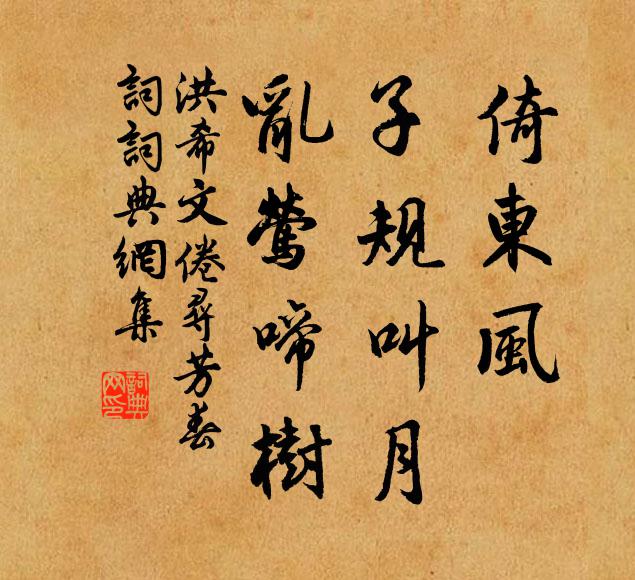 倚東風
子規叫月
亂鶯啼樹
洪希文倦尋芳春
詞詞典網集
詞典網印